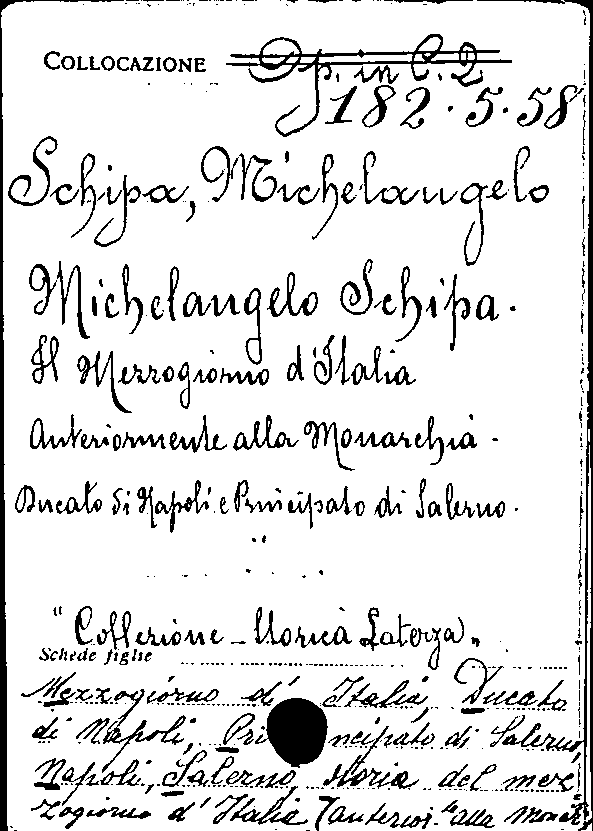 COLLOCAZIONE Op. in C. 2
182.5.58
Schipa, Michelangelo
Michelangelo Schipa.
Il Mezzogiorno d'Italia
Anteriormente alla Monarchia.
Ducato di Napoli e Principato di Salerno.
"Collezione Storica Laterza"
Schede figlie
Mezzogiorno d'Italia, Ducato
di Napoli, Principato di Salerno,
Napoli, Salerno, storia del mez
zogiorno d'Italia (anterior. alla